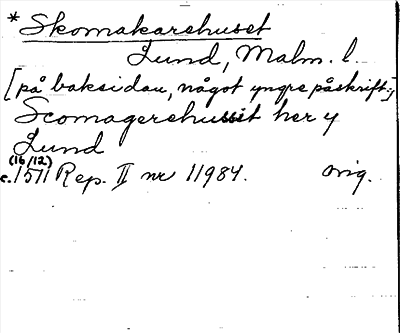 * Skomakarehuset
Lund, Malm. l.
[på baksidan, något yngre påskrift:]
Scomagerehusit her y
Lund
(16/12)
c. 1511 Rep. II nr 11984. orig.